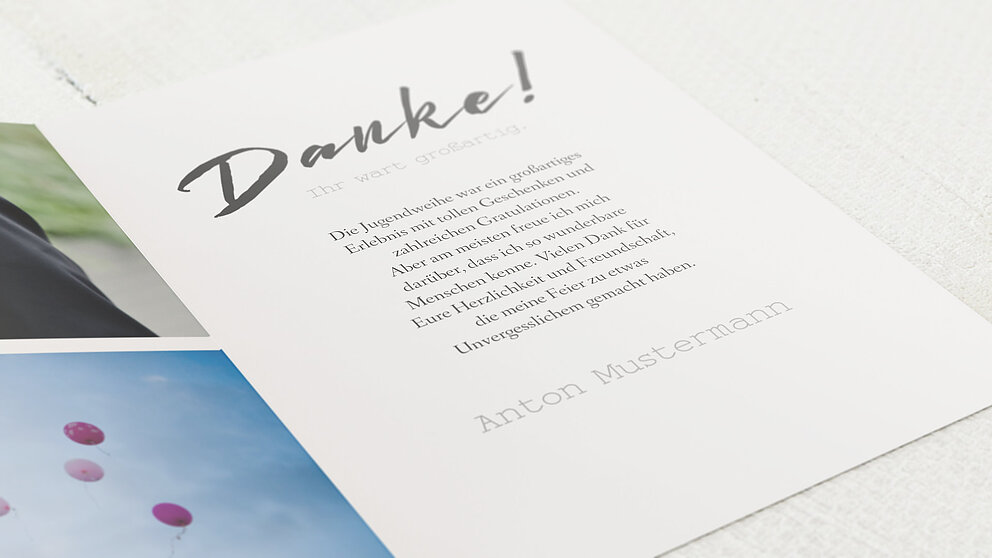 Danke!
Ihr wart großartig.
Die Jugendweihe war ein großartiges
Erlebnis mit tollen Geschenken und
zahlreichen Gratulationen.
Aber am meisten freue ich mich
darüber, dass ich so wunderbare
Menschen kenne. Vielen Dank für
Eure Herzlichkeit und Freundschaft,
die meine Feier zu etwas
Unvergesslichem gemacht haben.
Anton Mustermann